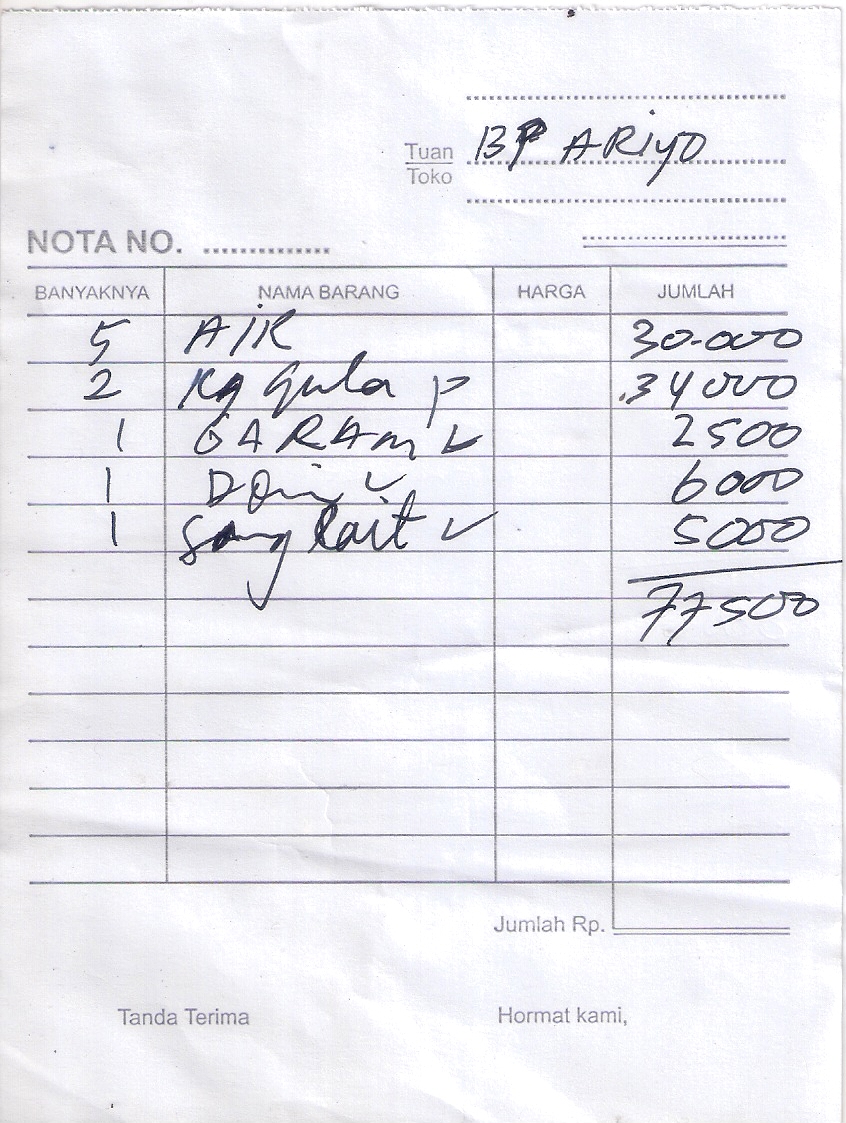 Tuan BP ARiyO
Toko
NOTA NO. ..............
BANYAKNYA NAMA BARANG HARGA JUMLAH
5 AIR 30.000
2 Kg gula P 34000
1 GARAm 2500
1 6000
1 5000
77500
Jumlah Rp.
Tanda Terima Hormat kami,